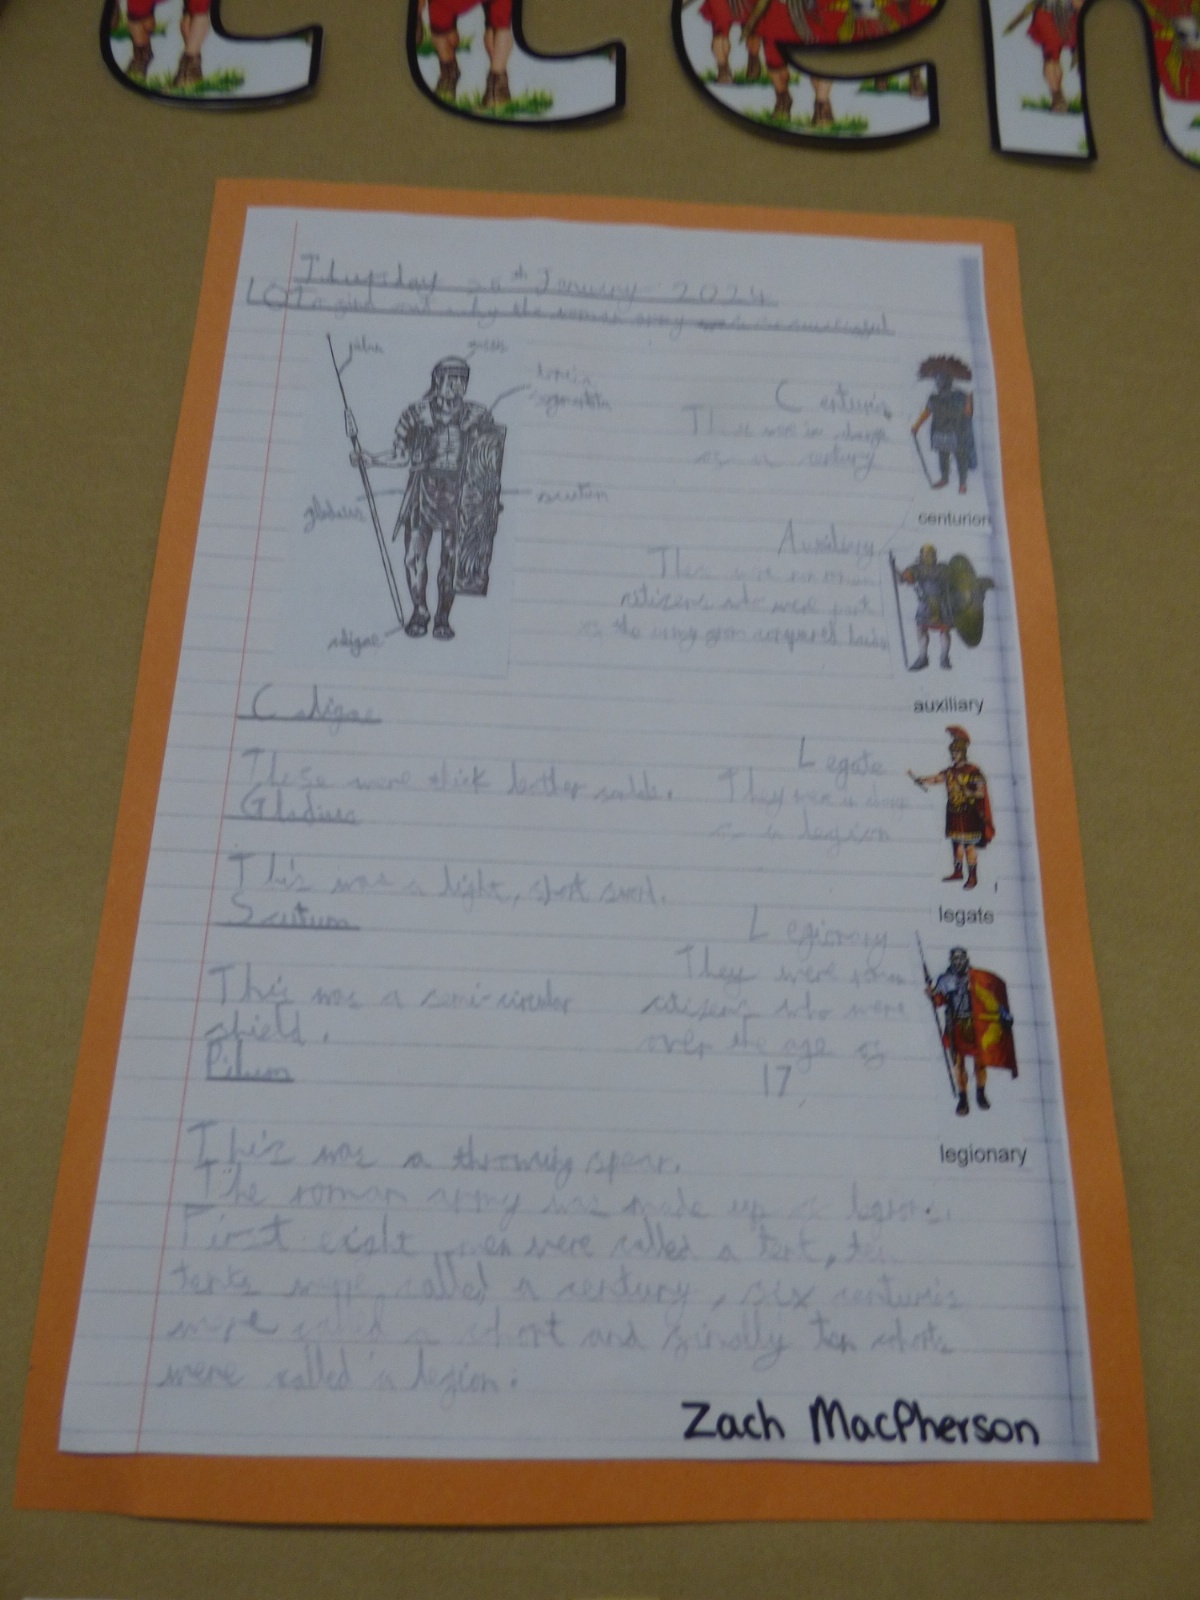 tten
Thursday January 2024
LO To find out why the roman army was so successful
pilum
lorica
segmentata
gladius
scutum
caligae
Centurion
They were in charge
of a century
centurion
Auxiliary
These were non roman
citizens who were part
of the army from conquered lands
auxiliary
Caligae
These were thick leather
Gladius
This was a light, short
Scutum
This was a semi-circular
shield.
Pilum
This was a throwing spear.
Legate
They were in charge
of a legion
legate
Legionary
They were roman
citizens who were
over the age of
17
legionary
The roman army was made up of legions.
First eight men were called a tent, ten
tents were called a century, six centuries
were called a cohort and finally ten cohorts
were called a legion.
Zach MacPherson